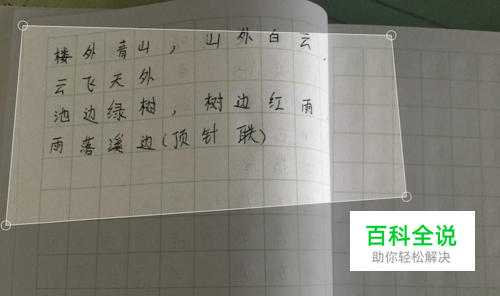 楼外青山，山外白云，
云飞天外
池边绿树，树边红雨
雨落溪边(顶针联)
百科全说
助你轻松解决